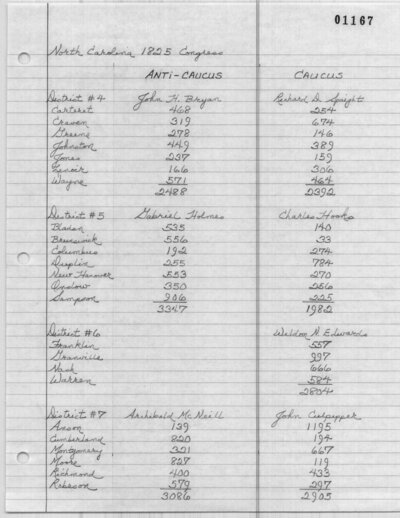 01167
North Carolina 1825 Congress
ANTI-CAUCUS CAUCUS
District #4 John H. Bryan Richard D. Spaight
Carteret 468 254
Craven 319 674
Greene 278 146
Johnston 449 389
Jones 237 159
Lenoir 166 306
Wayne 571 464
2488 2392
District #5 Gabriel Holmes Charles Hooks
Bladen 535 140
Brunswick 556 33
Columbus 192 274
Duplin 255 784
New Hanover 553 270
Onslow 350 256
Sampson 906 225
3347 1982
District #6 Weldon N. Edwards
Franklin 557
Granville 997
Nash 666
Warren 584
2804
District #7 Archibald McNeill John Culpepper
Anson 139 1195
Cumberland 820 194
Montgomery 321 667
Moore 827 119
Richmond 400 433
Robeson 579 297
3086 2905